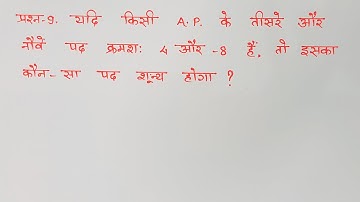 प्रश्न-9. यदि किसी A.P. के तीसरे और
नौवें पद क्रमशः 4 और -8 हैं, तो इसका
कौन-सा पद शून्य होगा ?